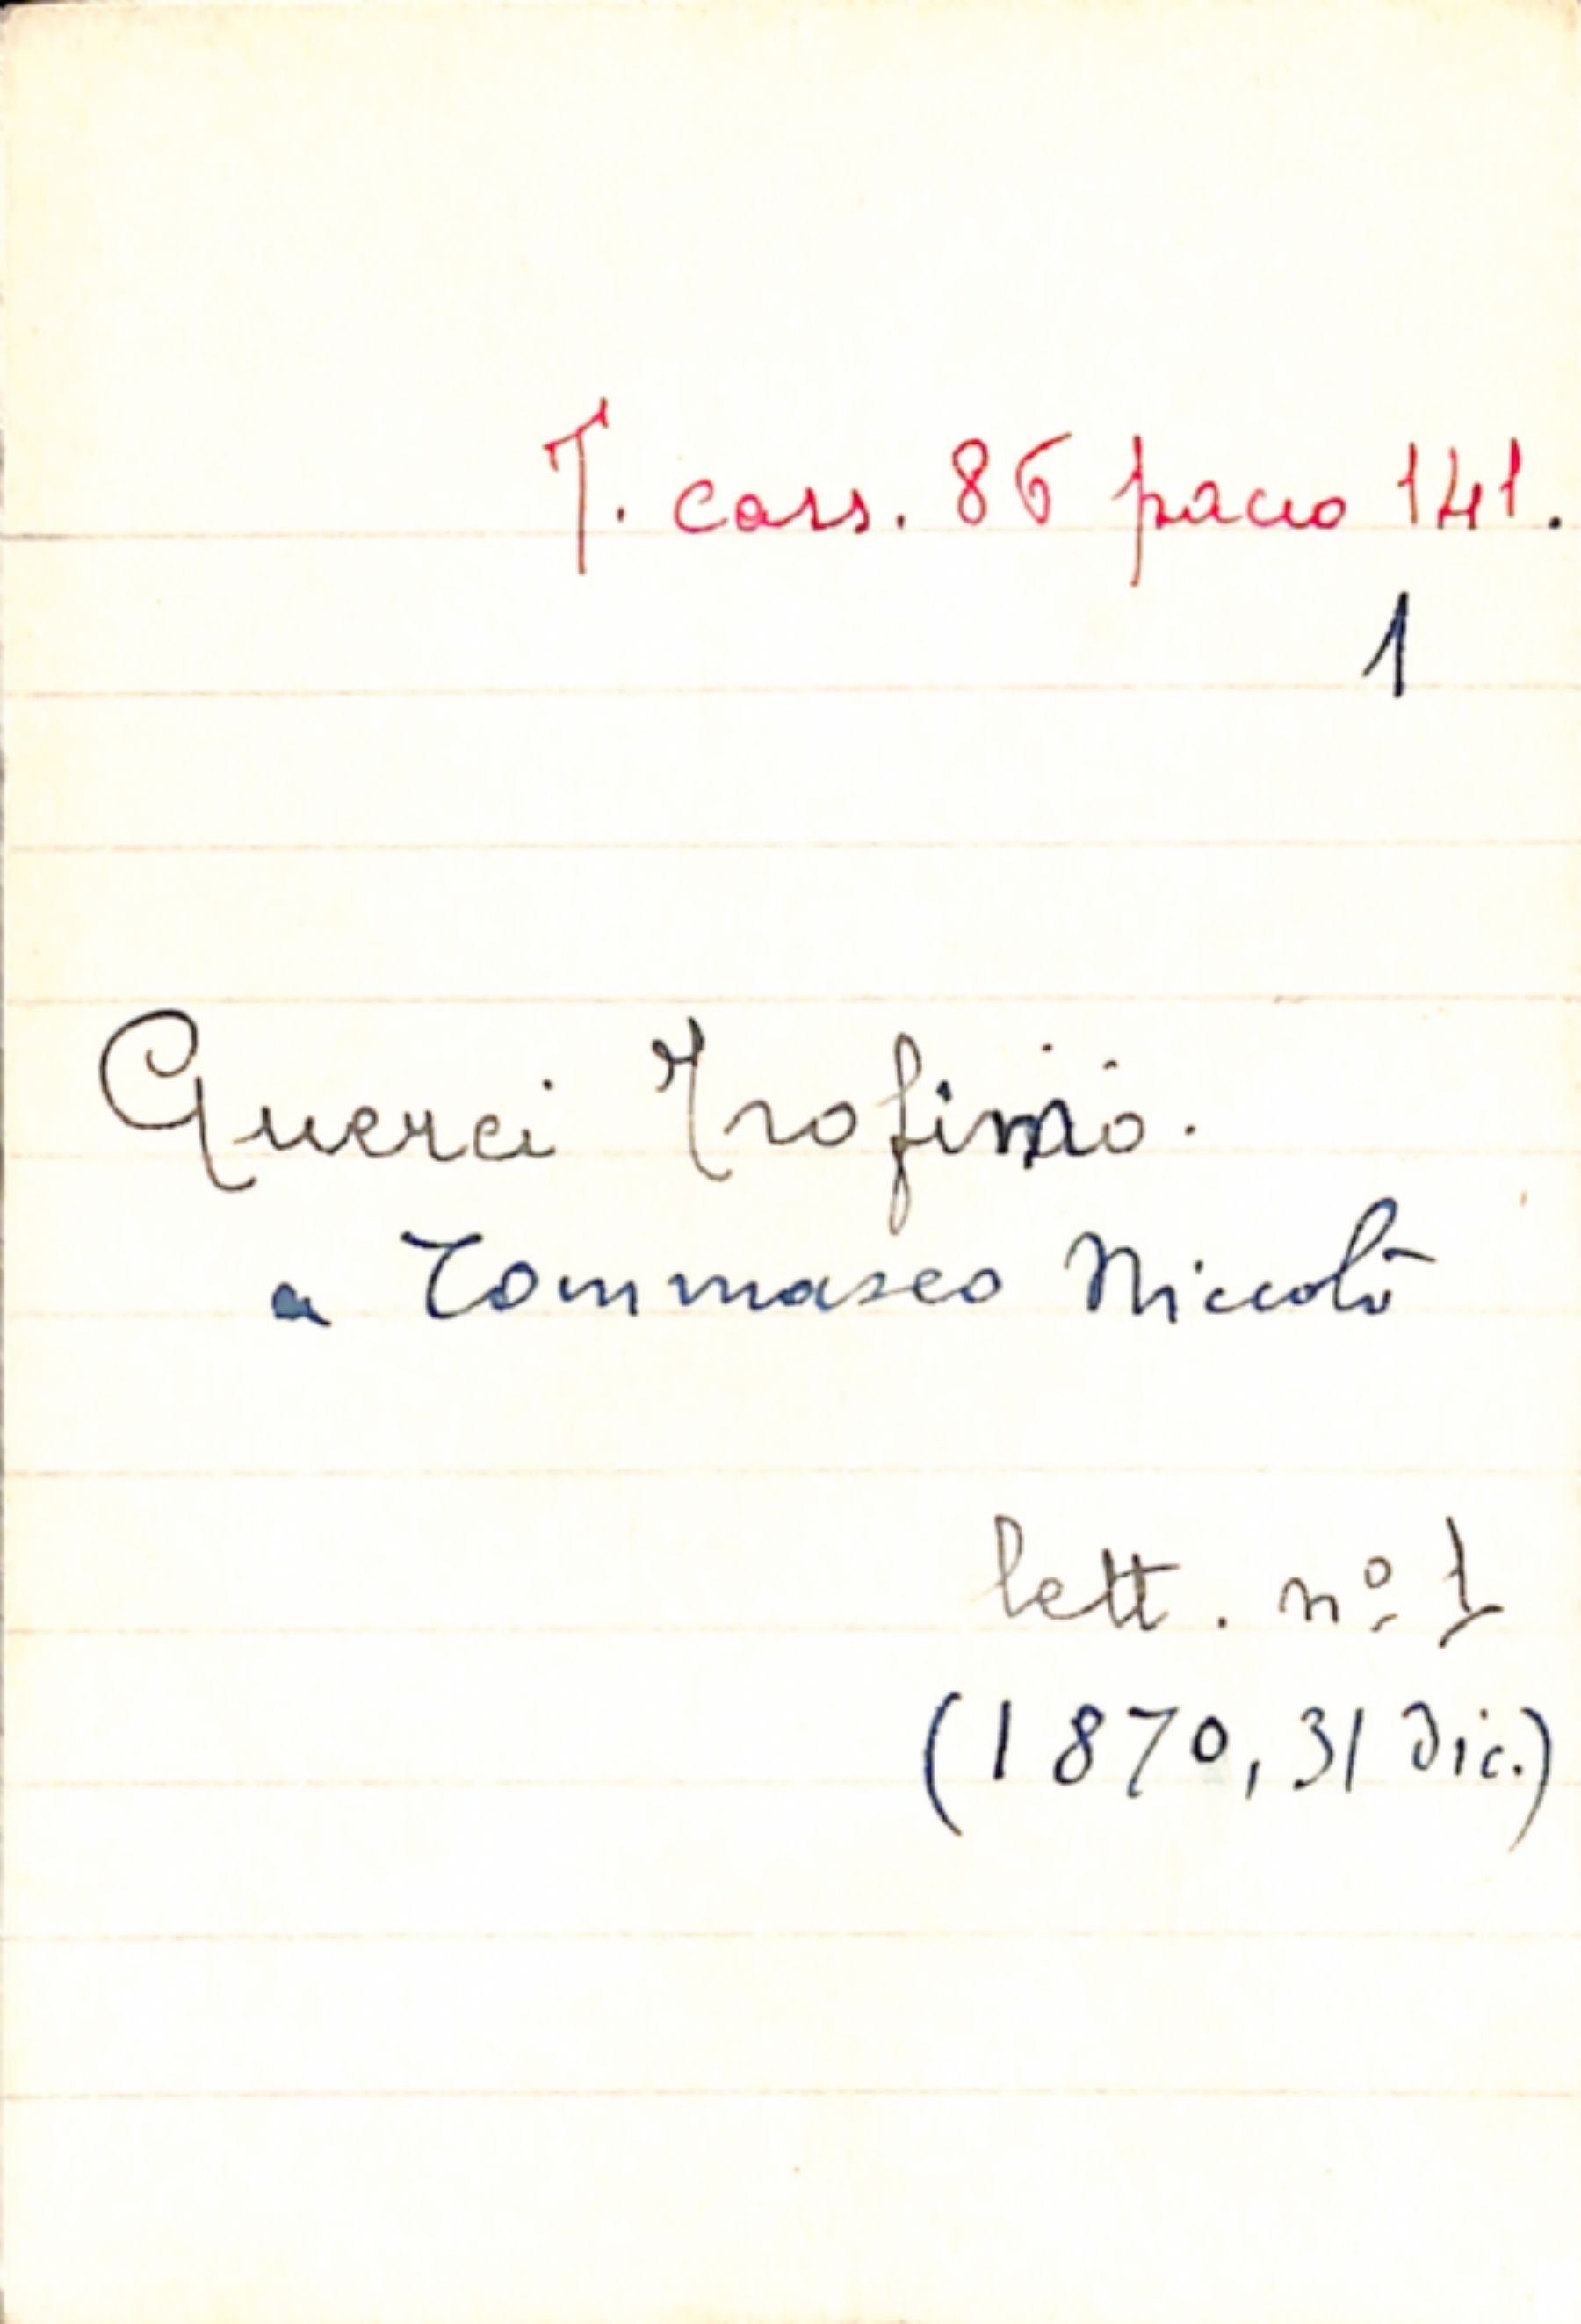 T. cass. 86 pacco 141.
1
Querci Trofimo.
a Tommaseo Niccolò
lett. nº 1
(1870, 31 dic.)